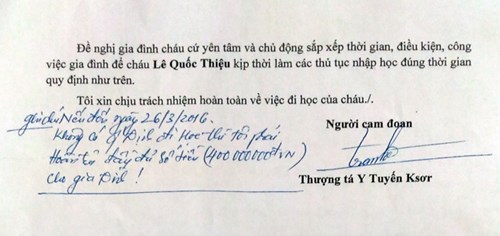 Đề nghị gia đình cháu cứ yên tâm và chủ động sắp xếp thời gian, điều kiện, công
việc gia đình để cháu Lê Quốc Thiệu kịp thời làm các thủ tục nhập học đúng thời gian
quy định như trên.
Tôi xin chịu trách nhiệm hoàn toàn về việc đi học của cháu./.
ghi chú Nếu đến ngày 26/3/2016
Không có q Định đi Học thì tôi phải
Người cam đoan
Hoàn trả đầy đủ số tiền (400 000 000đVN)
cho gia Đình !
Thượng tá Y Tuyến Ksơr